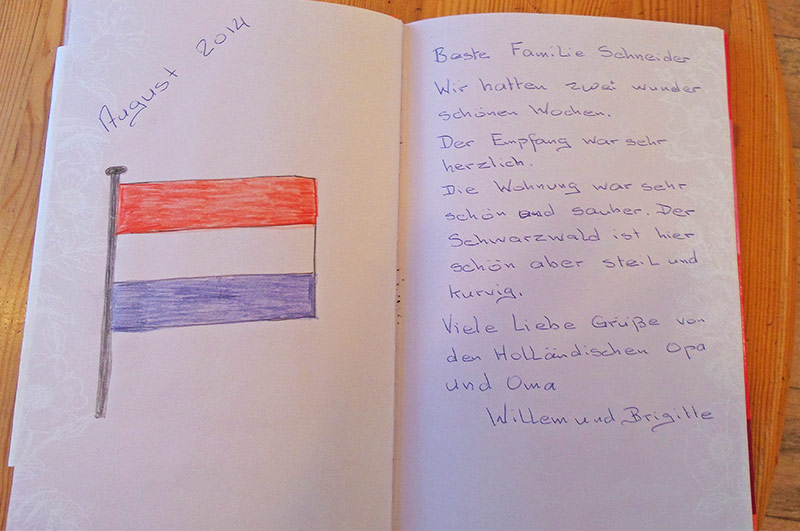 August 2014
Beste Familie Schneider
Wir hatten zwei wunder
schönen Wochen.
Der Empfang war sehr
herzlich.
Die Wohnung war sehr
schön und sauber. Der
Schwarzwald ist hier
schön aber steil und
kurvig.
Viele Liebe Grüße von
den Holländischen Opa
und Oma
Willem und Brigitte